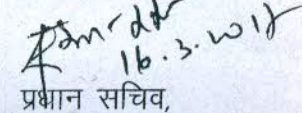 16.3.2017
प्रधान सचिव,